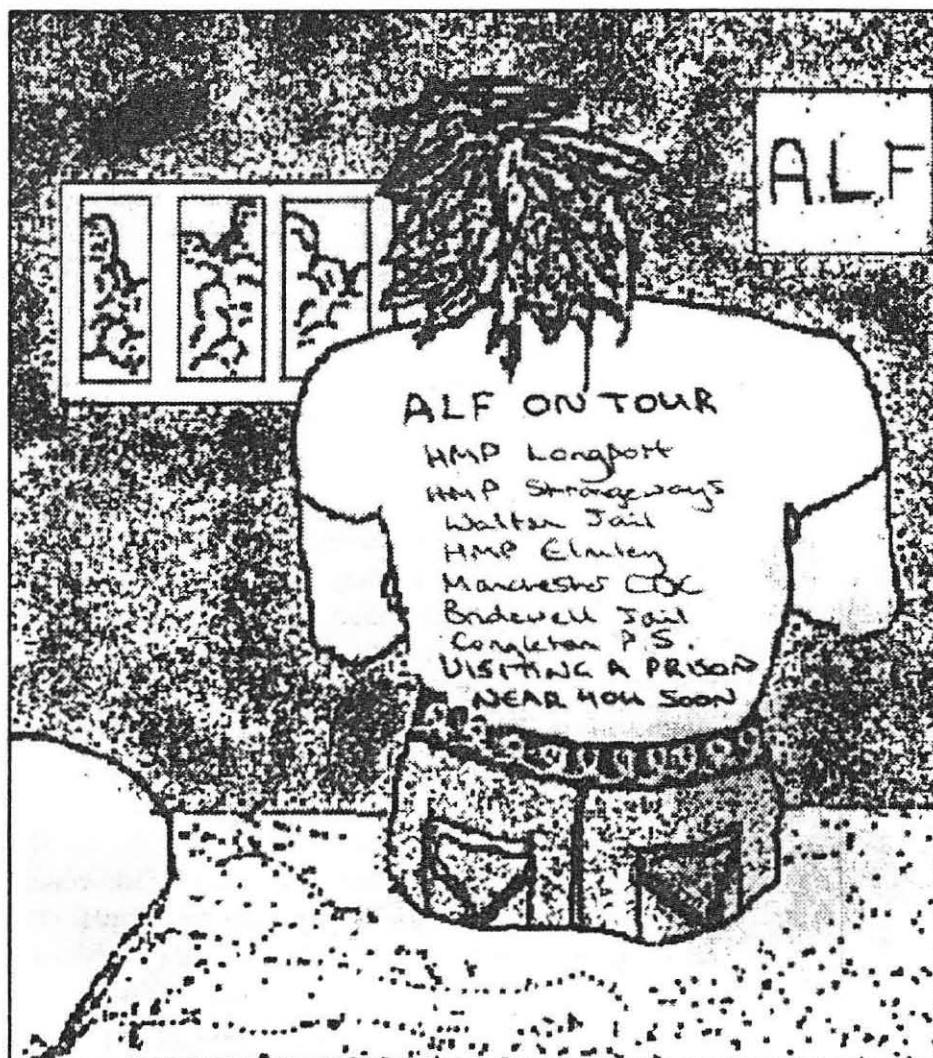 ALF
ALF ON TOUR
HMP Longport
HMP Strangeways
Walton Jail
HMP Elmley
Manchester CDC
Bridewell Jail
Congleton P.S.
VISITING A PRISON
NEAR YOU SOON